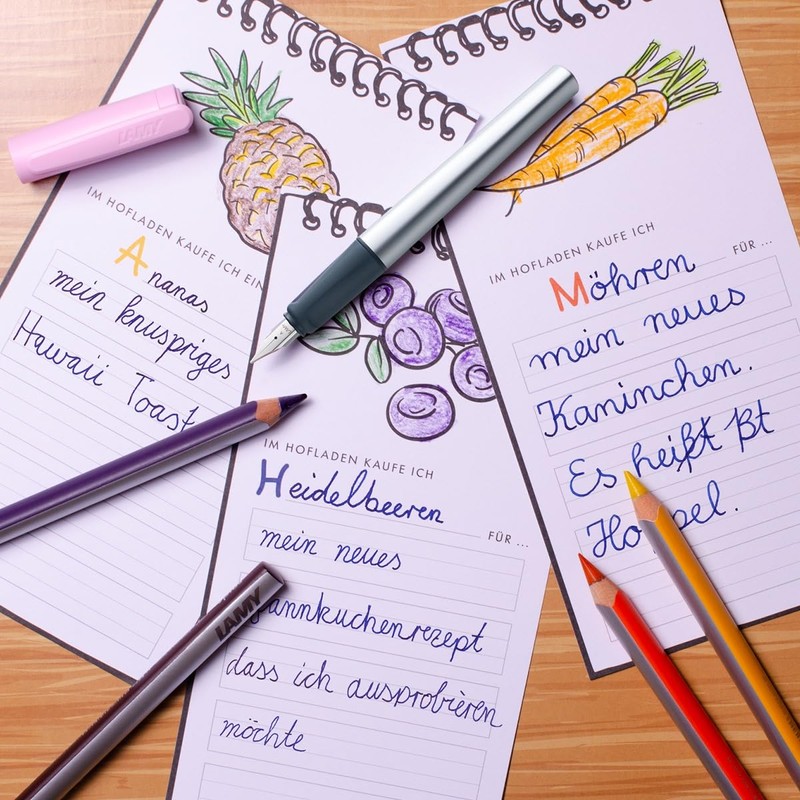 LAMY
IM HOFLADEN KAUFE ICH EIN
Ananas
mein knuspriges
Hawaii Toast
IM HOFLADEN KAUFE ICH
Heidelbeeren
FÜR ...
mein neues
annkuchenrezept
dass ich ausprobieren
möchte
LAMY
IM HOFLADEN KAUFE ICH
Möhren FÜR ...
mein neues
Kaninchen.
Es heißt ßt